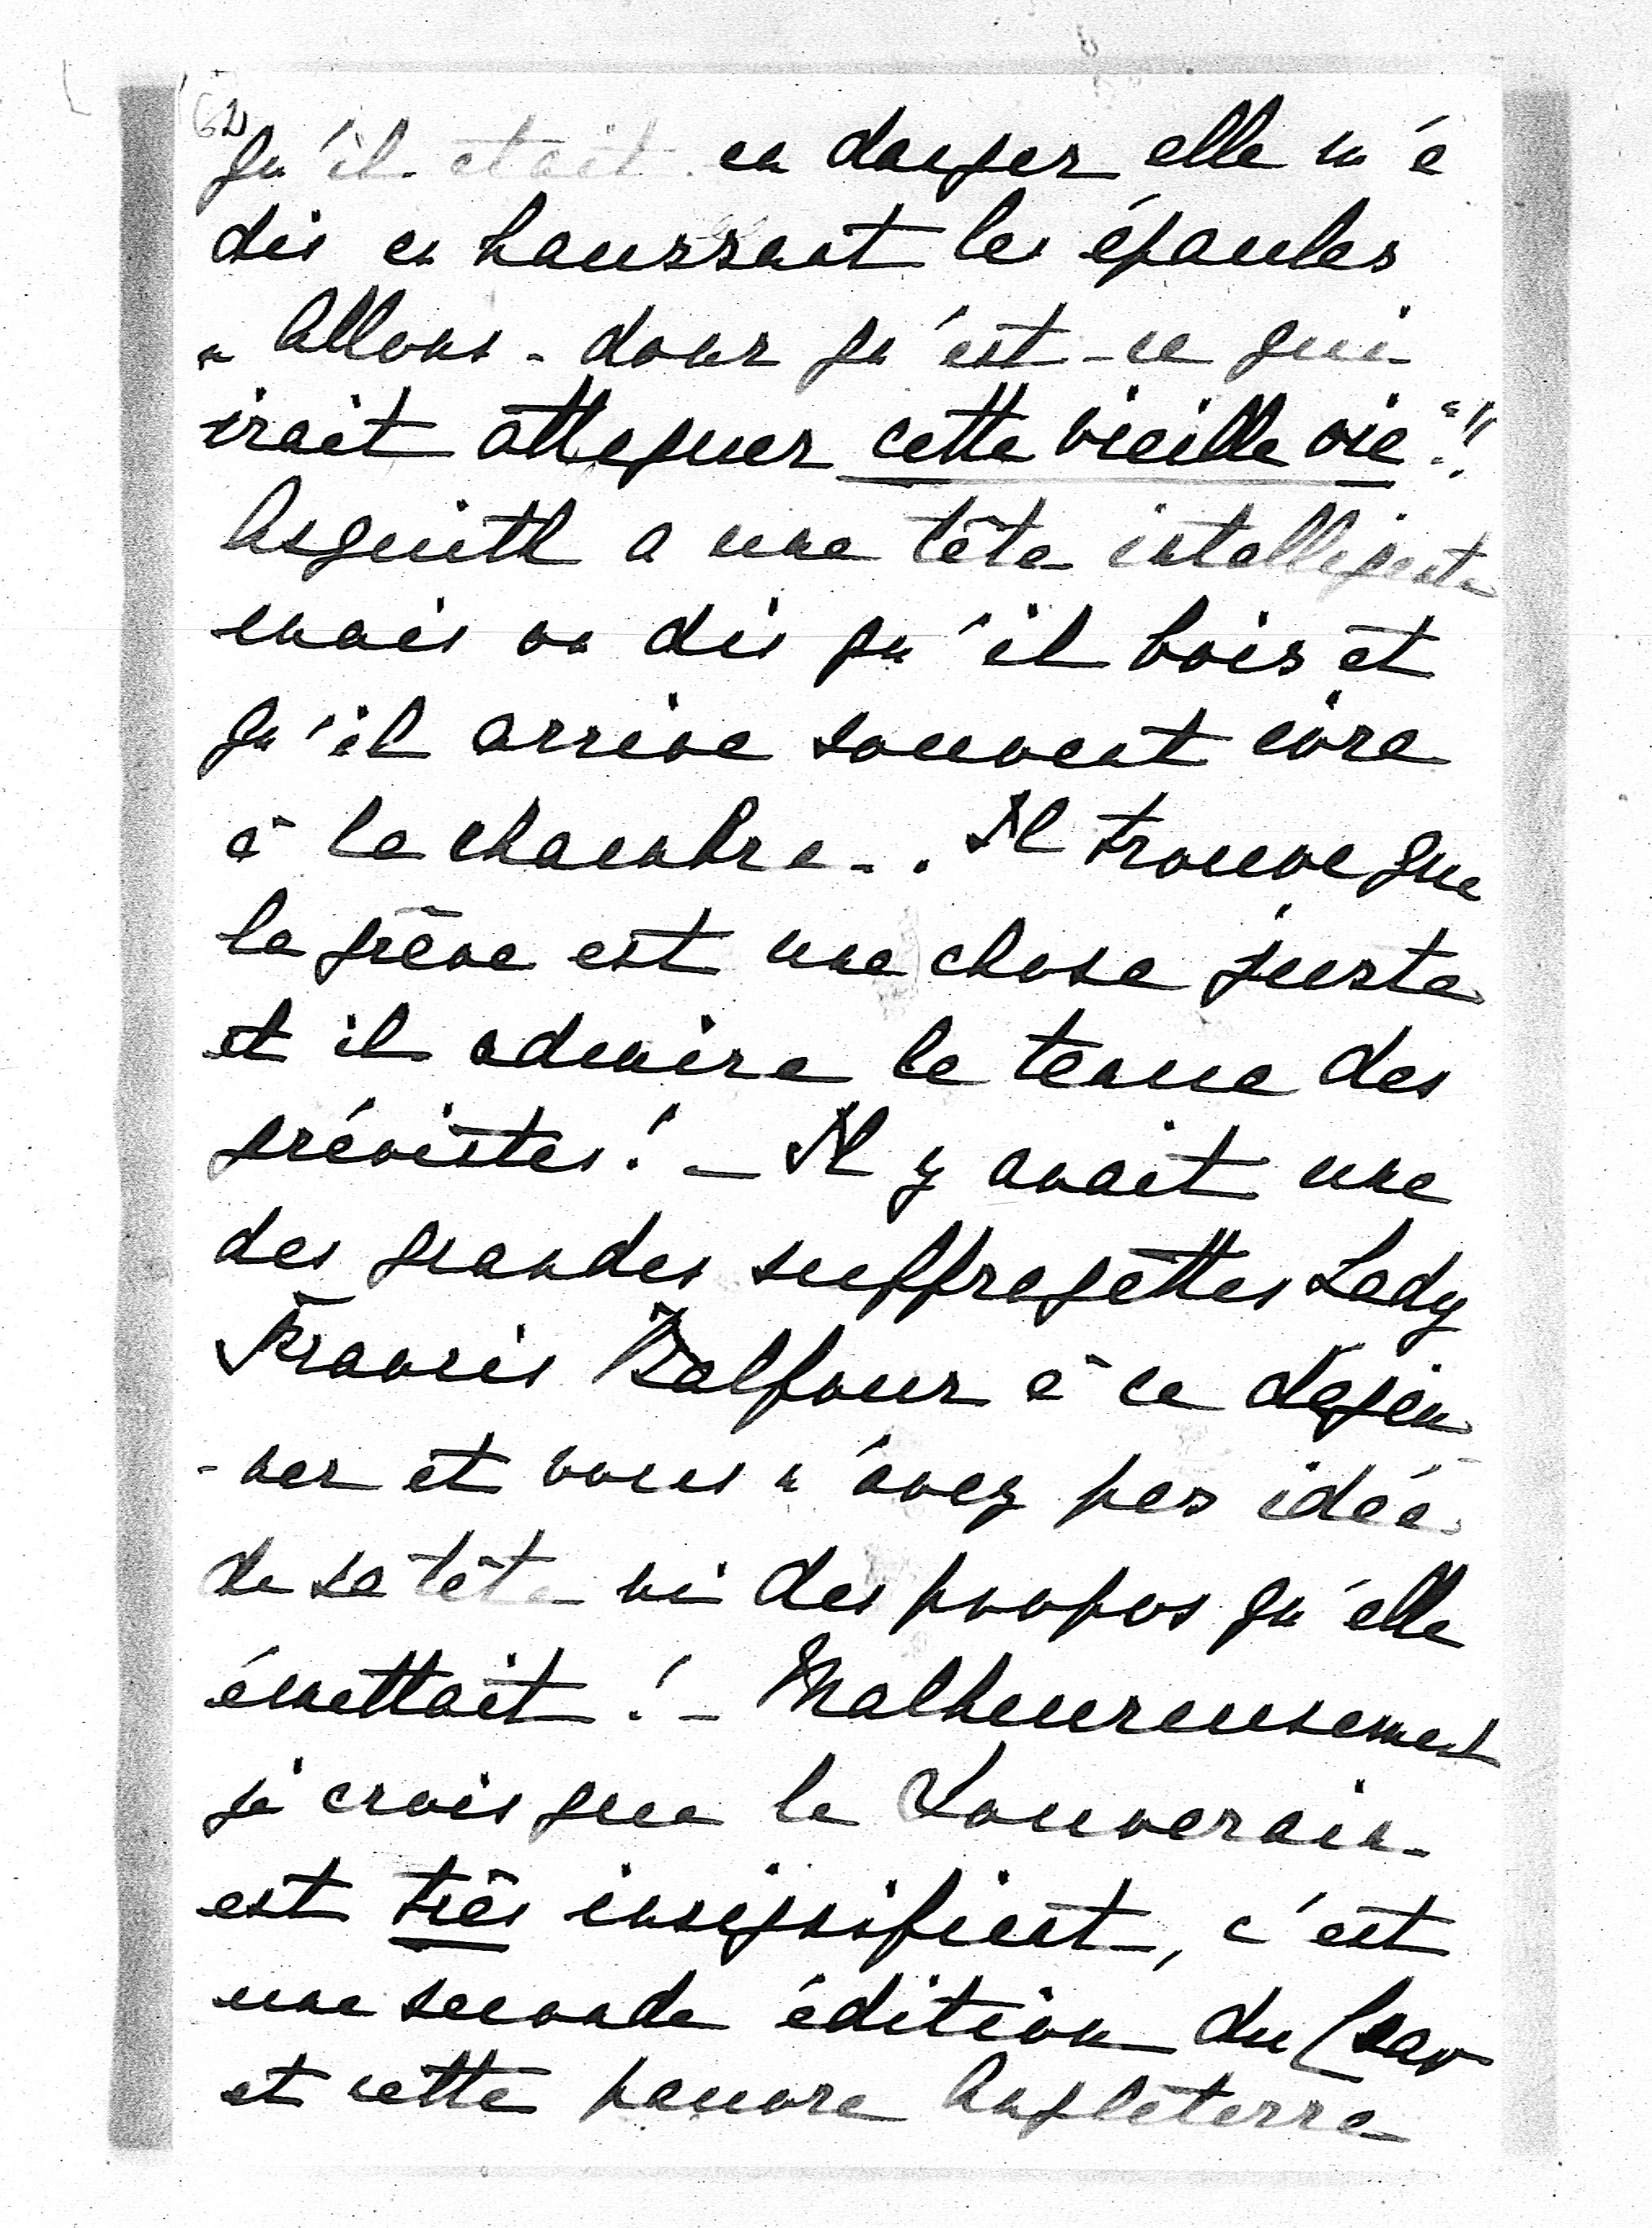 62
qu'il etait en danger elle m'a
dis en haussant les épaules
" Allons - donc qu'est-ce qui
irait attaquer cette vieille oie"!!
Asquith a une tête intelligente
mais on dis qu'il bois et
qu'il arrive souvent ivre
à la chambre... Il trouve que
la grève est une chose juste
et il admire la tenue des
grévistes! - Il y avait une
des grandes suffragettes Lady
Francis Balfour à ce dejeu
-ner et vous n'avez pas idée
de sa tête ni des propos qu'elle
émettait! - Malheureusement
je crois que le Souverain
est très insignifiant, c'est
une seconde édition du Csar
et cette pauvre Angleterre